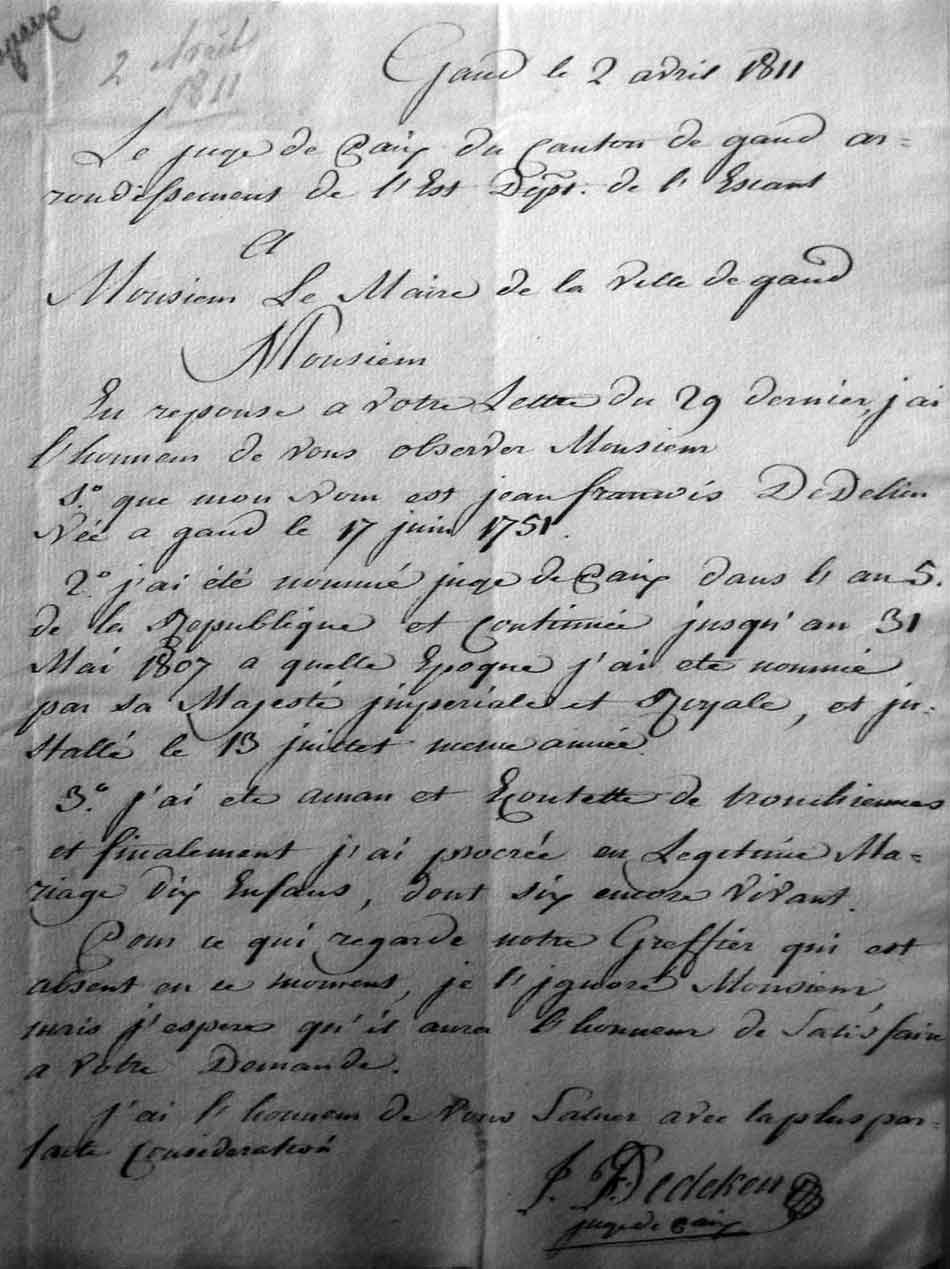 2 Avril
1811
Gand le 2 avril 1811
Le juge de Paix du Canton de gand ar=
rondissement de l'Est Dépt. de l'Escaut
A
Monsieur Le Maire de la Ville de gand
Monsieur
En reponse a votre Lettre du 29 dernier, j'ai
l'honneur de vous observer Monsieur
1.° que mon Nom est jean francois DeDeken
Née a gand le 17 juin 1751.
2.° j'ai été nommé juge de Paix dans l'an 5.
de la Republique et Continuée jusqu'au 31
Mai 1807 a quelle Epoque j'ai ete nommé
par sa Majesté jmperiale et Royale, et jn-
stallé le 13 juillet meme année.
3.° j'ai ete aman et Ecoutette de tronchiennes
et finalement j'ai procrée en Legitime Ma=
riage dix Enfans, dont six encore vivant.
Pour ce qui regarde notre Greffier qui est
absent en ce moment, je l'jgnore Monsieur,
mais j'espere qu'il aura l'honneur de Satisfaire
a votre Demande.
j'ai l'honneur de Vous Saluer avec la plus par=
faite Consideration
J. F. Dedeken
juge de Paix